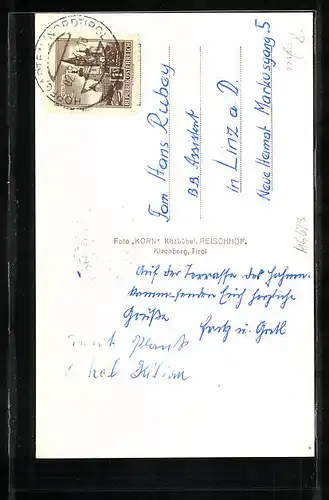 HOPFGARTEN · NORDTIROL
REPUBLIK ÖSTERREICH
Fam Hans Rubay
BB Assistent
in Linz a D.
Neue Heimat Markusgang 5
Foto „KORN“ Kitzbühel, REISCHHOF,
Kirchberg, Tirol
Auf der Terrasse des Hahnen-
kamm senden Euch herzliche
Grüße
Fritz u. Gretl